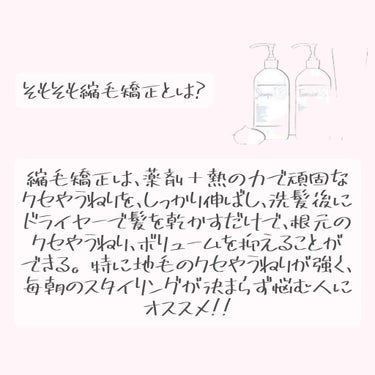 そもそも縮毛矯正とは?
縮毛矯正は、薬剤＋熱の力で頑固な
クセやうねりを、しっかり伸ばし、洗髪後に
ドライヤーで髪を乾かすだけで、根元の
クセやうねり、ボリュームを抑えることが
できる。特に地毛のクセやうねりが強く、
毎朝のスタイリングが決まらず悩む人に
オススメ!!